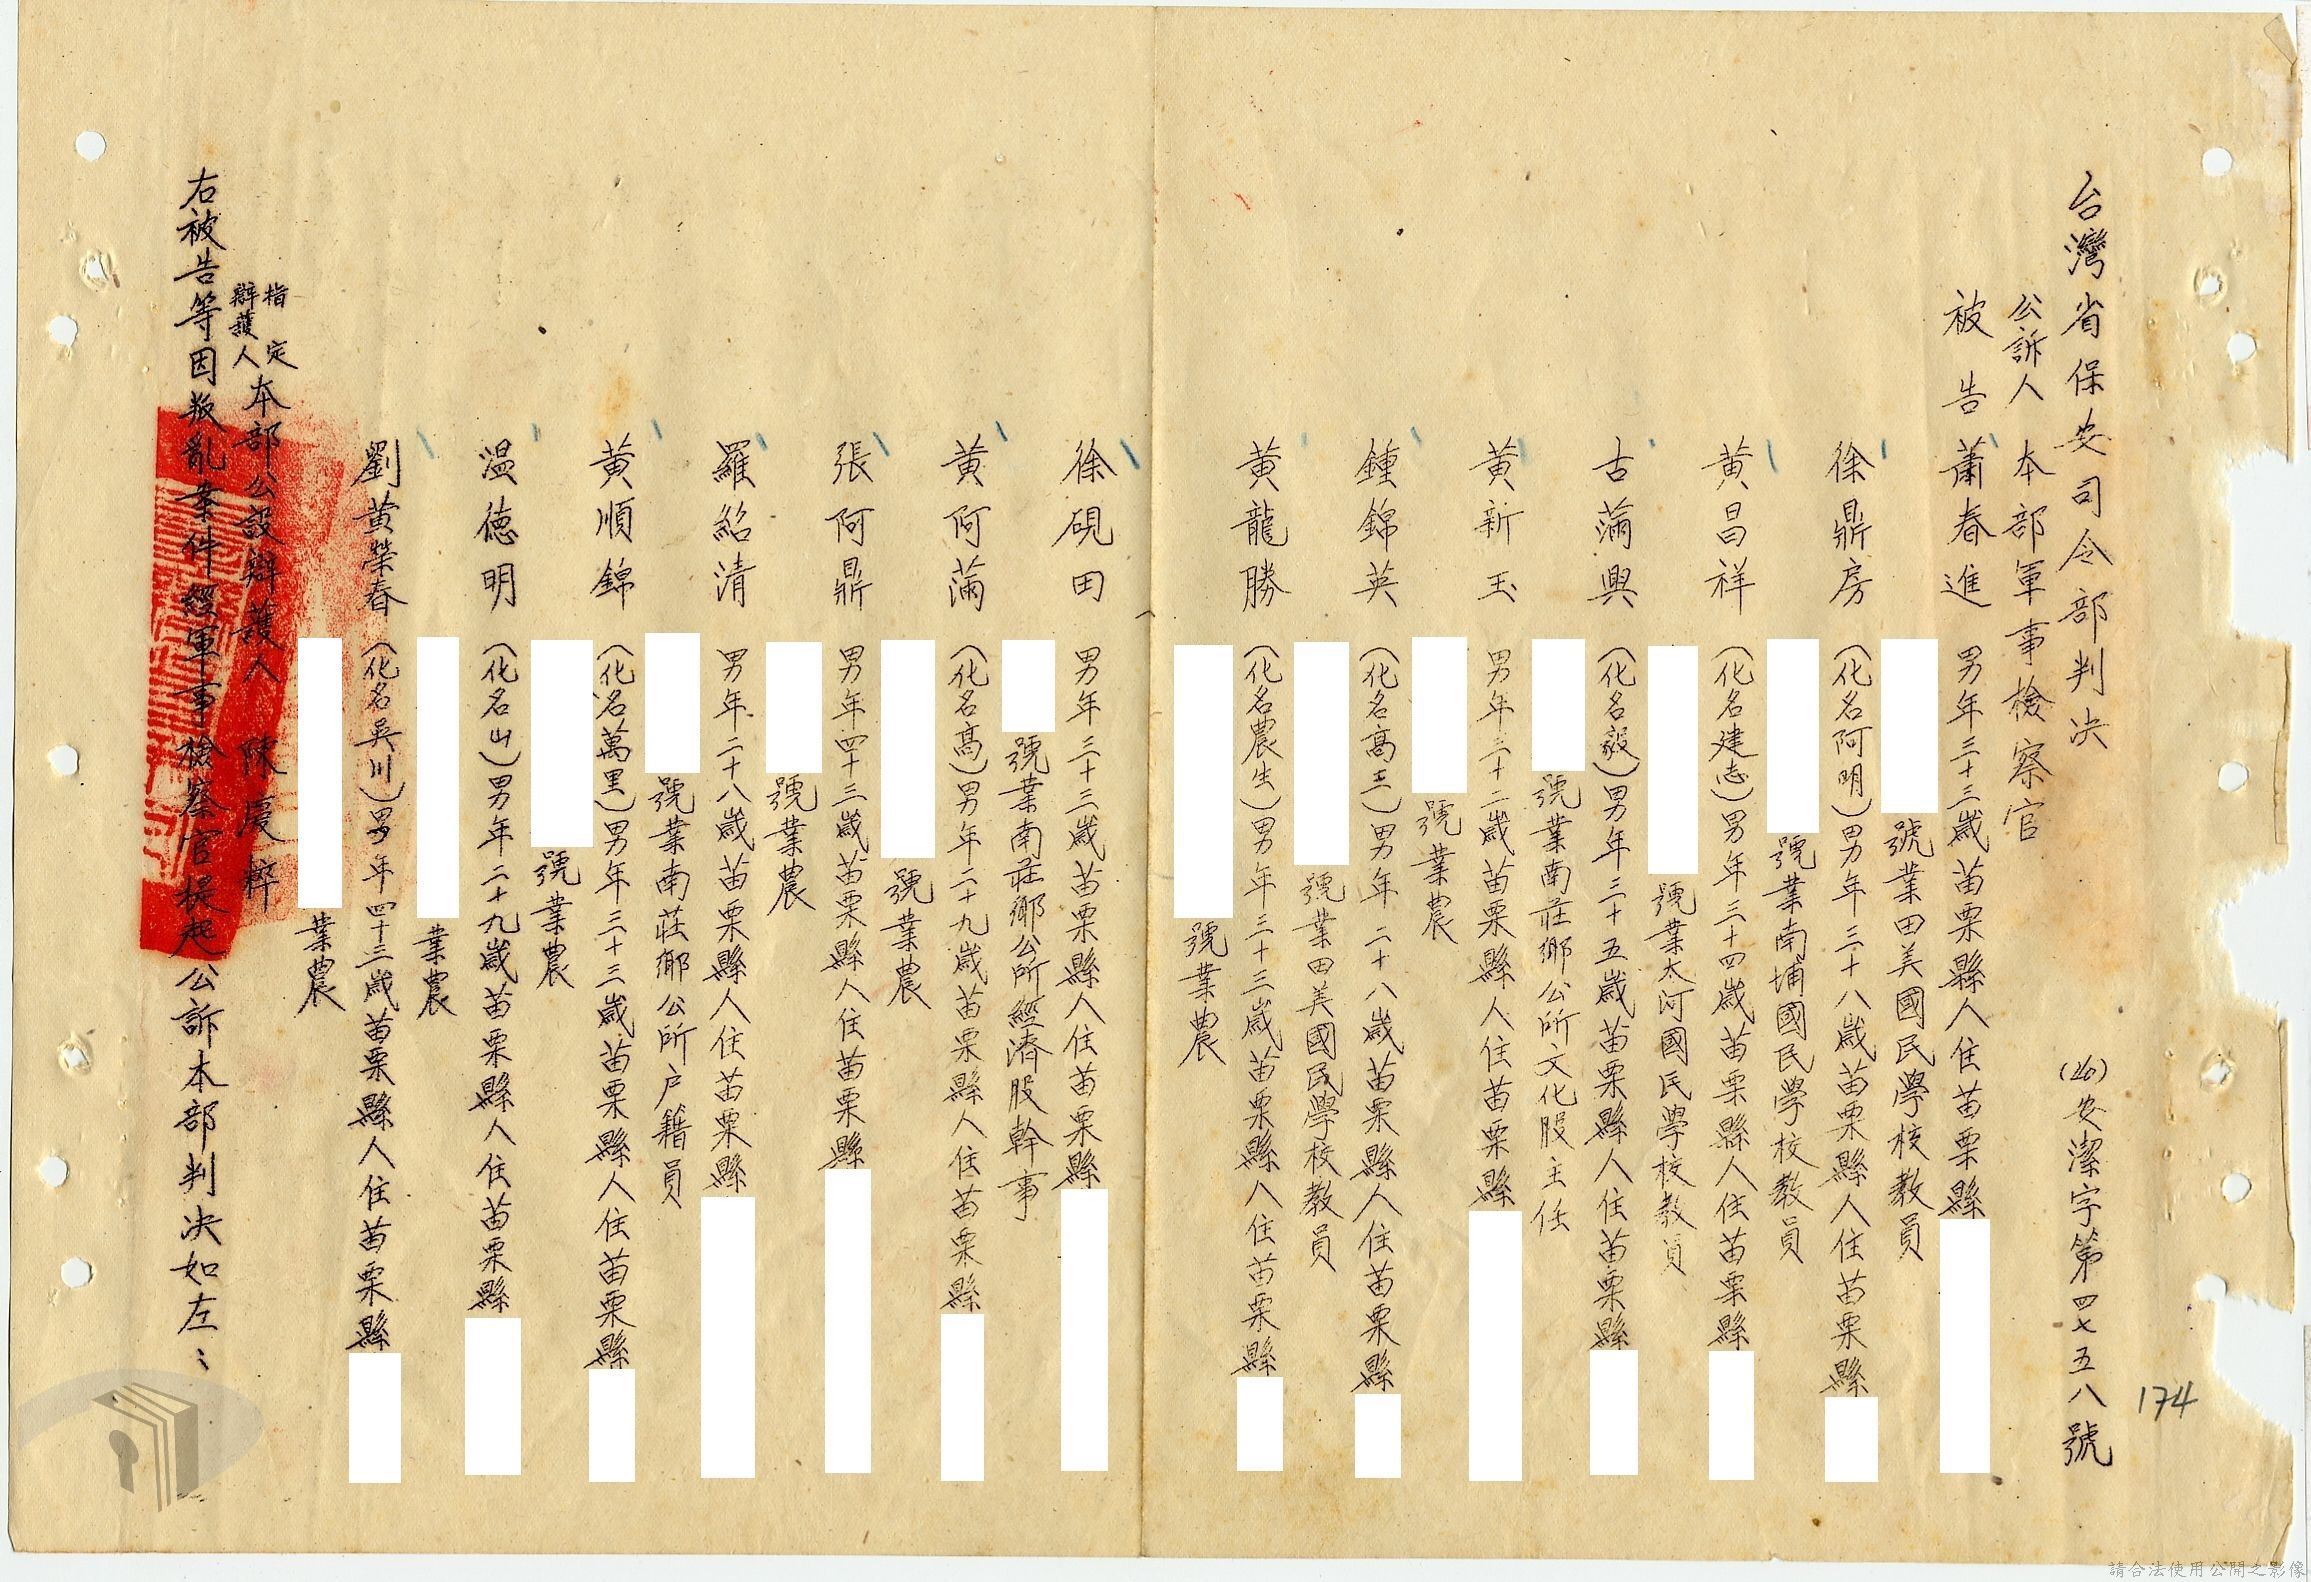 台灣省保安司令部判決
(40)安潔字第四七五八號
174
公訴人 本部軍事檢察官
被告 蕭春進 男年三十三歲苗栗縣人住苗栗縣
號業田美國民學校教員
徐鼎房 (化名阿明)男年三十八歲苗栗縣人住苗栗縣
號業南埔國民學校教員
黃昌祥 (化名建志)男年三十四歲苗栗縣人住苗栗縣
號業太河國民學校教員
古滿興 (化名毅)男年三十五歲苗栗縣人住苗栗縣
號業南莊鄉公所文化股主任
黃新玉 男年三十二歲苗栗縣人住苗栗縣
號業農
鍾錦英 (化名高士)男年二十八歲苗栗縣人住苗栗縣
號業田美國民學校教員
黃龍勝 (化名農生)男年三十三歲苗栗縣人住苗栗縣
號業農
徐硯田 男年三十三歲苗栗縣人住苗栗縣
號業南莊鄉公所經濟股幹事
黃阿滿 (化名高)男年二十九歲苗栗縣人住苗栗縣
號業農
張阿鼎 男年四十三歲苗栗縣人住苗栗縣
號業農
羅紹清 男年二十八歲苗栗縣人住苗栗縣
號業南莊鄉公所户籍員
黃順錦 (化名萬里)男年三十三歲苗栗縣人住苗栗縣
號業農
温德明 (化名山)男年二十九歲苗栗縣人住苗栗縣
業農
劉黃榮春 (化名吳川)男年四十三歲苗栗縣人住苗栗縣
業農
指定辯護人 本部公設辯護人 陳 粹
右被告等因叛亂案件經軍事檢察官提起公訴本部判決如左：
請合法使用公開之影像